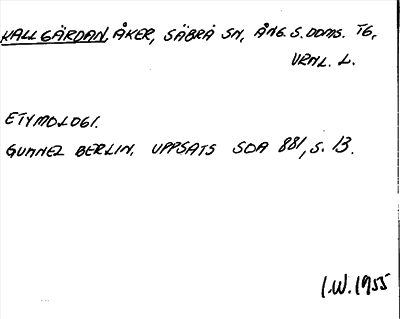 KALLGÄRDAN, ÅKER, SÄBRÅ SN, ÅNG. S. DOMS. TG,
VRNL. L.
ETYMOLOGI.
GUNNEL BERLIN. UPPSATS SOA 881, S. 13.
I.W. 1955